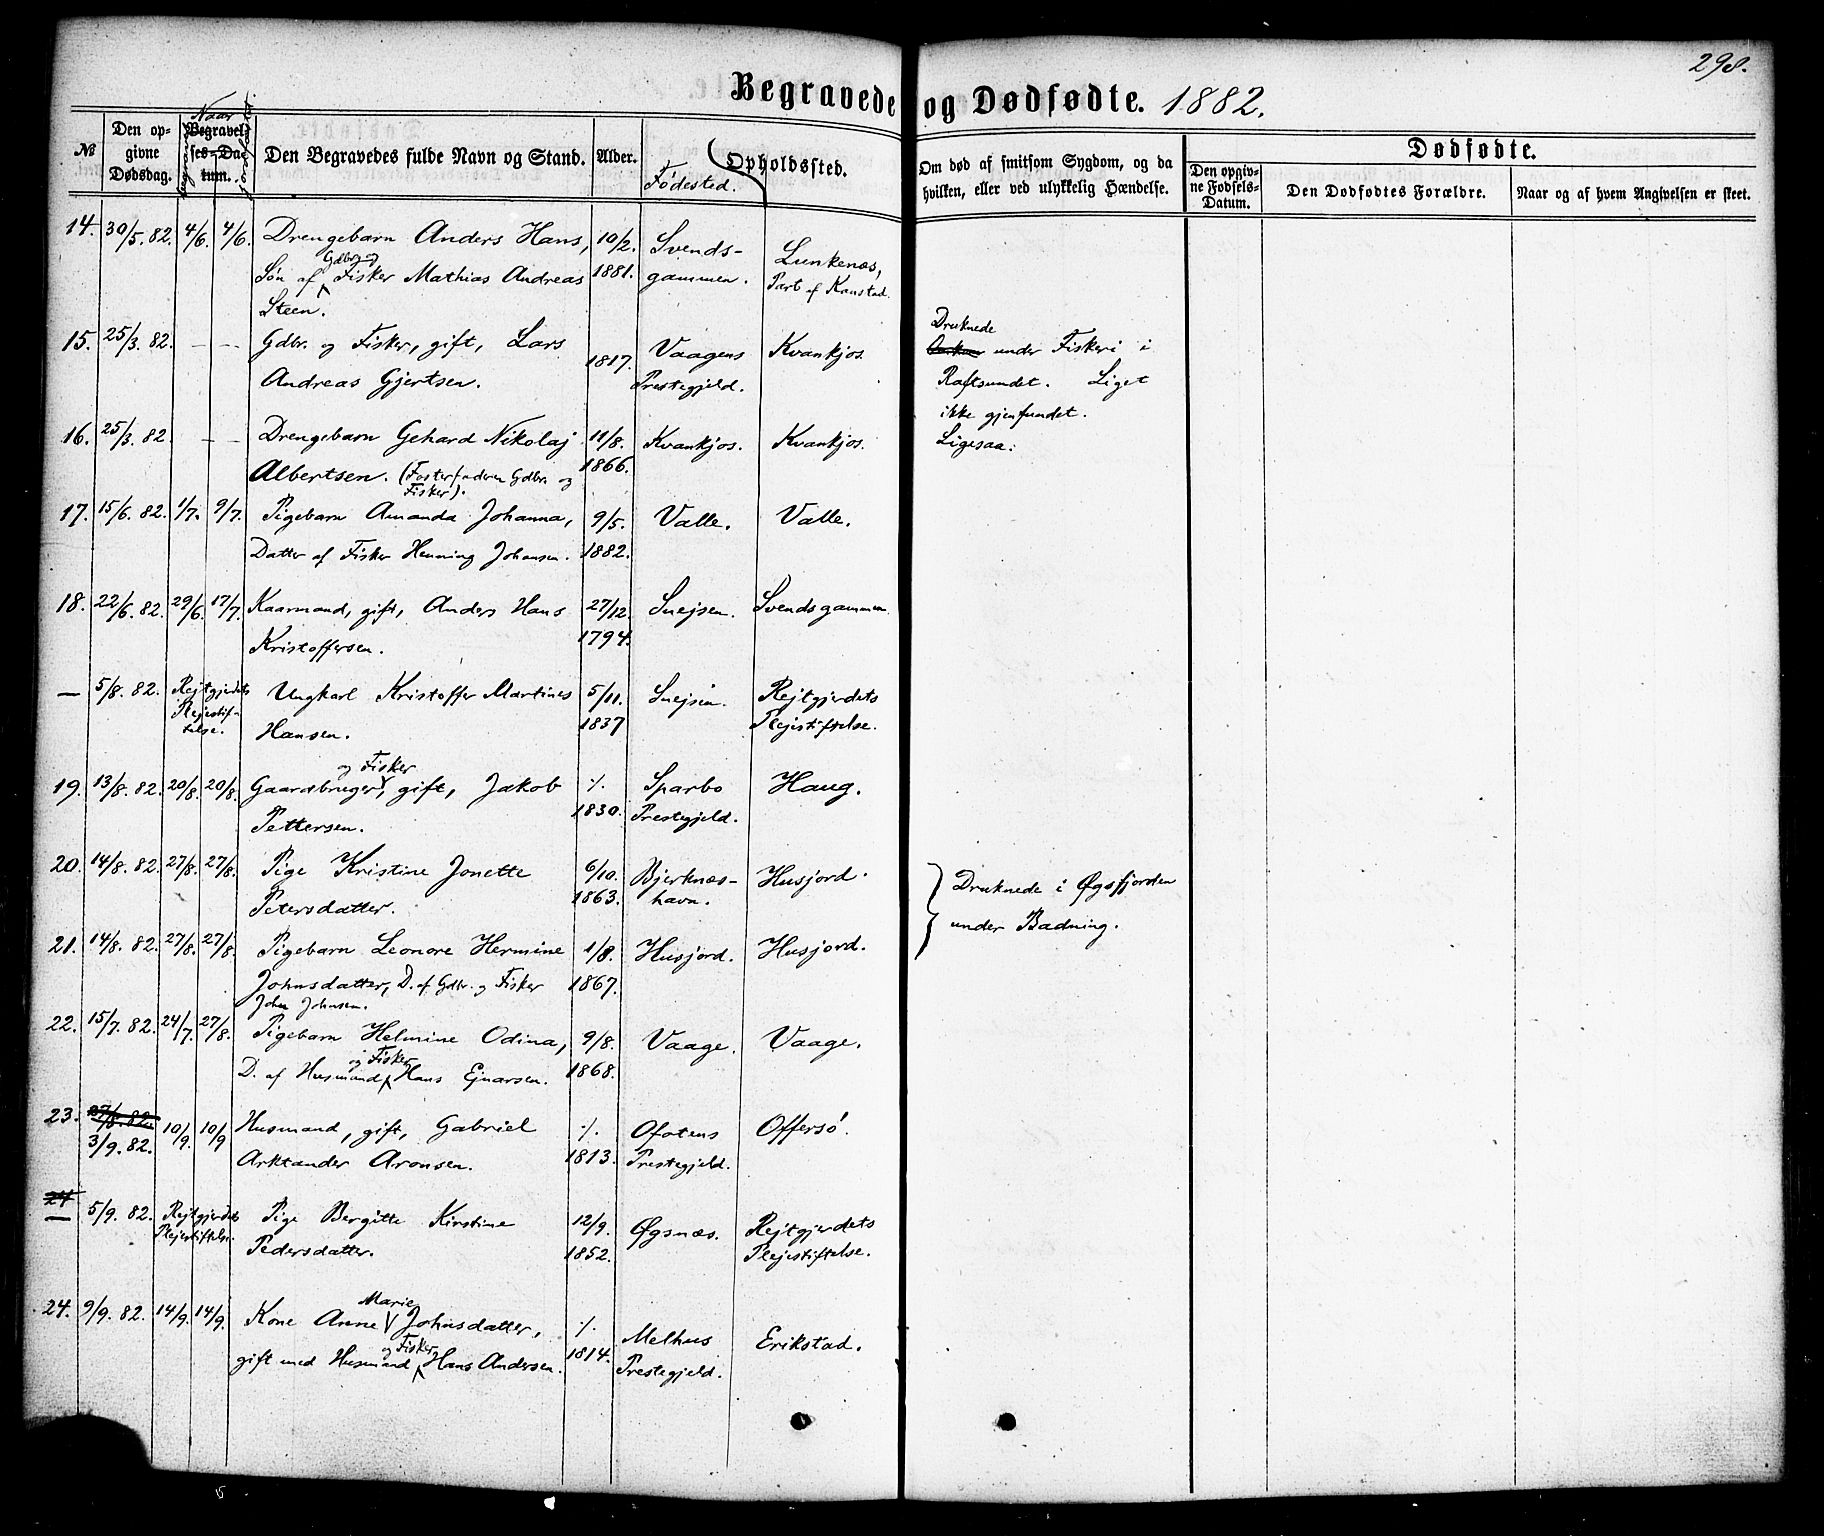 298.
Begravede og Dødfødte. 1882.
№
Den opgivne Dødsdag.
Naar
Begravelses-Datum.
Den Begravedes fulde Navn og Stand.
Alder.
Fødested.
Opholdssted.
Om død af smitsom Sygdom, og da hvilken, eller ved ulykkelig Hændelse.
Dødfødte.
Den opgivne Fødsels-Datum.
Den Dødfødtes Forældre.
Naar og af hvem Angivelsen er skeet.
14. 30/5. 82. 4/6. 4/6. Drengebarn Anders Hans, 10/2. Svends- Lunkenæs,
Søn af Gdbr. og Fisker Mathias Andreas 1881. gammen. Part af Kanstad.
Steen.
15. 25/3. 82. — — Gdbr. og Fisker, gift, Lars 1817. Vaagens Kvankjos. Druknede under Fiskeri i
Andreas Gjertsen. Prestegjeld. Raftsundet. Liget
ikke gjenfundet.
16. 25/3. 82. — — Drengebarn Gehard Nikolaj 11/8. Kvankjos. Kvankjos. Ligesaa:
Albertsen. (Fosterfaderen Gdbr. og 1866.
Fisker).
17. 15/6. 82. 1/7. 9/7. Pigebarn Amanda Johanna, 9/5. Valle. Valle.
Datter af Fisker Henning Johansen. 1882.
18. 22/6. 82. 29/6. 17/7. Kaarmand, gift, Anders Hans 27/12. Snejsen. Svendsgammen.
Kristoffersen. 1794.
— 5/8. 82. Rejtgjerdets Ungkarl Kristoffer Martines 5/11. Snejsen. Rejtgjerdets
Plejestif- Hansen. 1837 Plejestiftelse.
telse.
19. 13/8. 82. 20/8. 20/8. Gaardbruger og Fisker, gift, Jakob ./. Sparbo Haug.
Pettersen. 1830. Prestegjeld.
20. 14/8. 82. 27/8. 27/8. Pige Kristine Jonette 6/10. Bjerknæs- Husjord. } Druknede i Øgsfjorden
Petersdatter. 1863. havn. under Badning.
21. 14/8. 82. 27/8. 27/8. Pigebarn Leonore Hermine 1/8. Husjord. Husjord.
Johnsdatter, D. af Gdbr. og Fisker 1867.
John Johnsen.
22. 15/7. 82. 24/7. 27/8. Pigebarn Helmine Odina, 9/8. Vaage. Vaage.
D. af Husmand og Fisker Hans Ejnarsen. 1868.
23. 27/8. 82. Husmand, gift, Gabriel ./. Ofotens Offersø.
3/9. 82. 10/9. 10/9 Arktander Aronsen. 1813. Prestegjeld.
24
— 5/9. 82. Rejtgjerdets Pige Bergitte Kirstine 12/9. Øgsnæs. Rejtgjerdets
Plejestiftelse. Pedersdatter. 1852. Plejestiftelse.
24. 9/9. 82. 14/9. 14/9. Kone Anne Marie Johnsdatter, ./. Melhus Erikstad.
gift med Husmand og Fisker Hans Andersen. 1814. Prestegjeld.